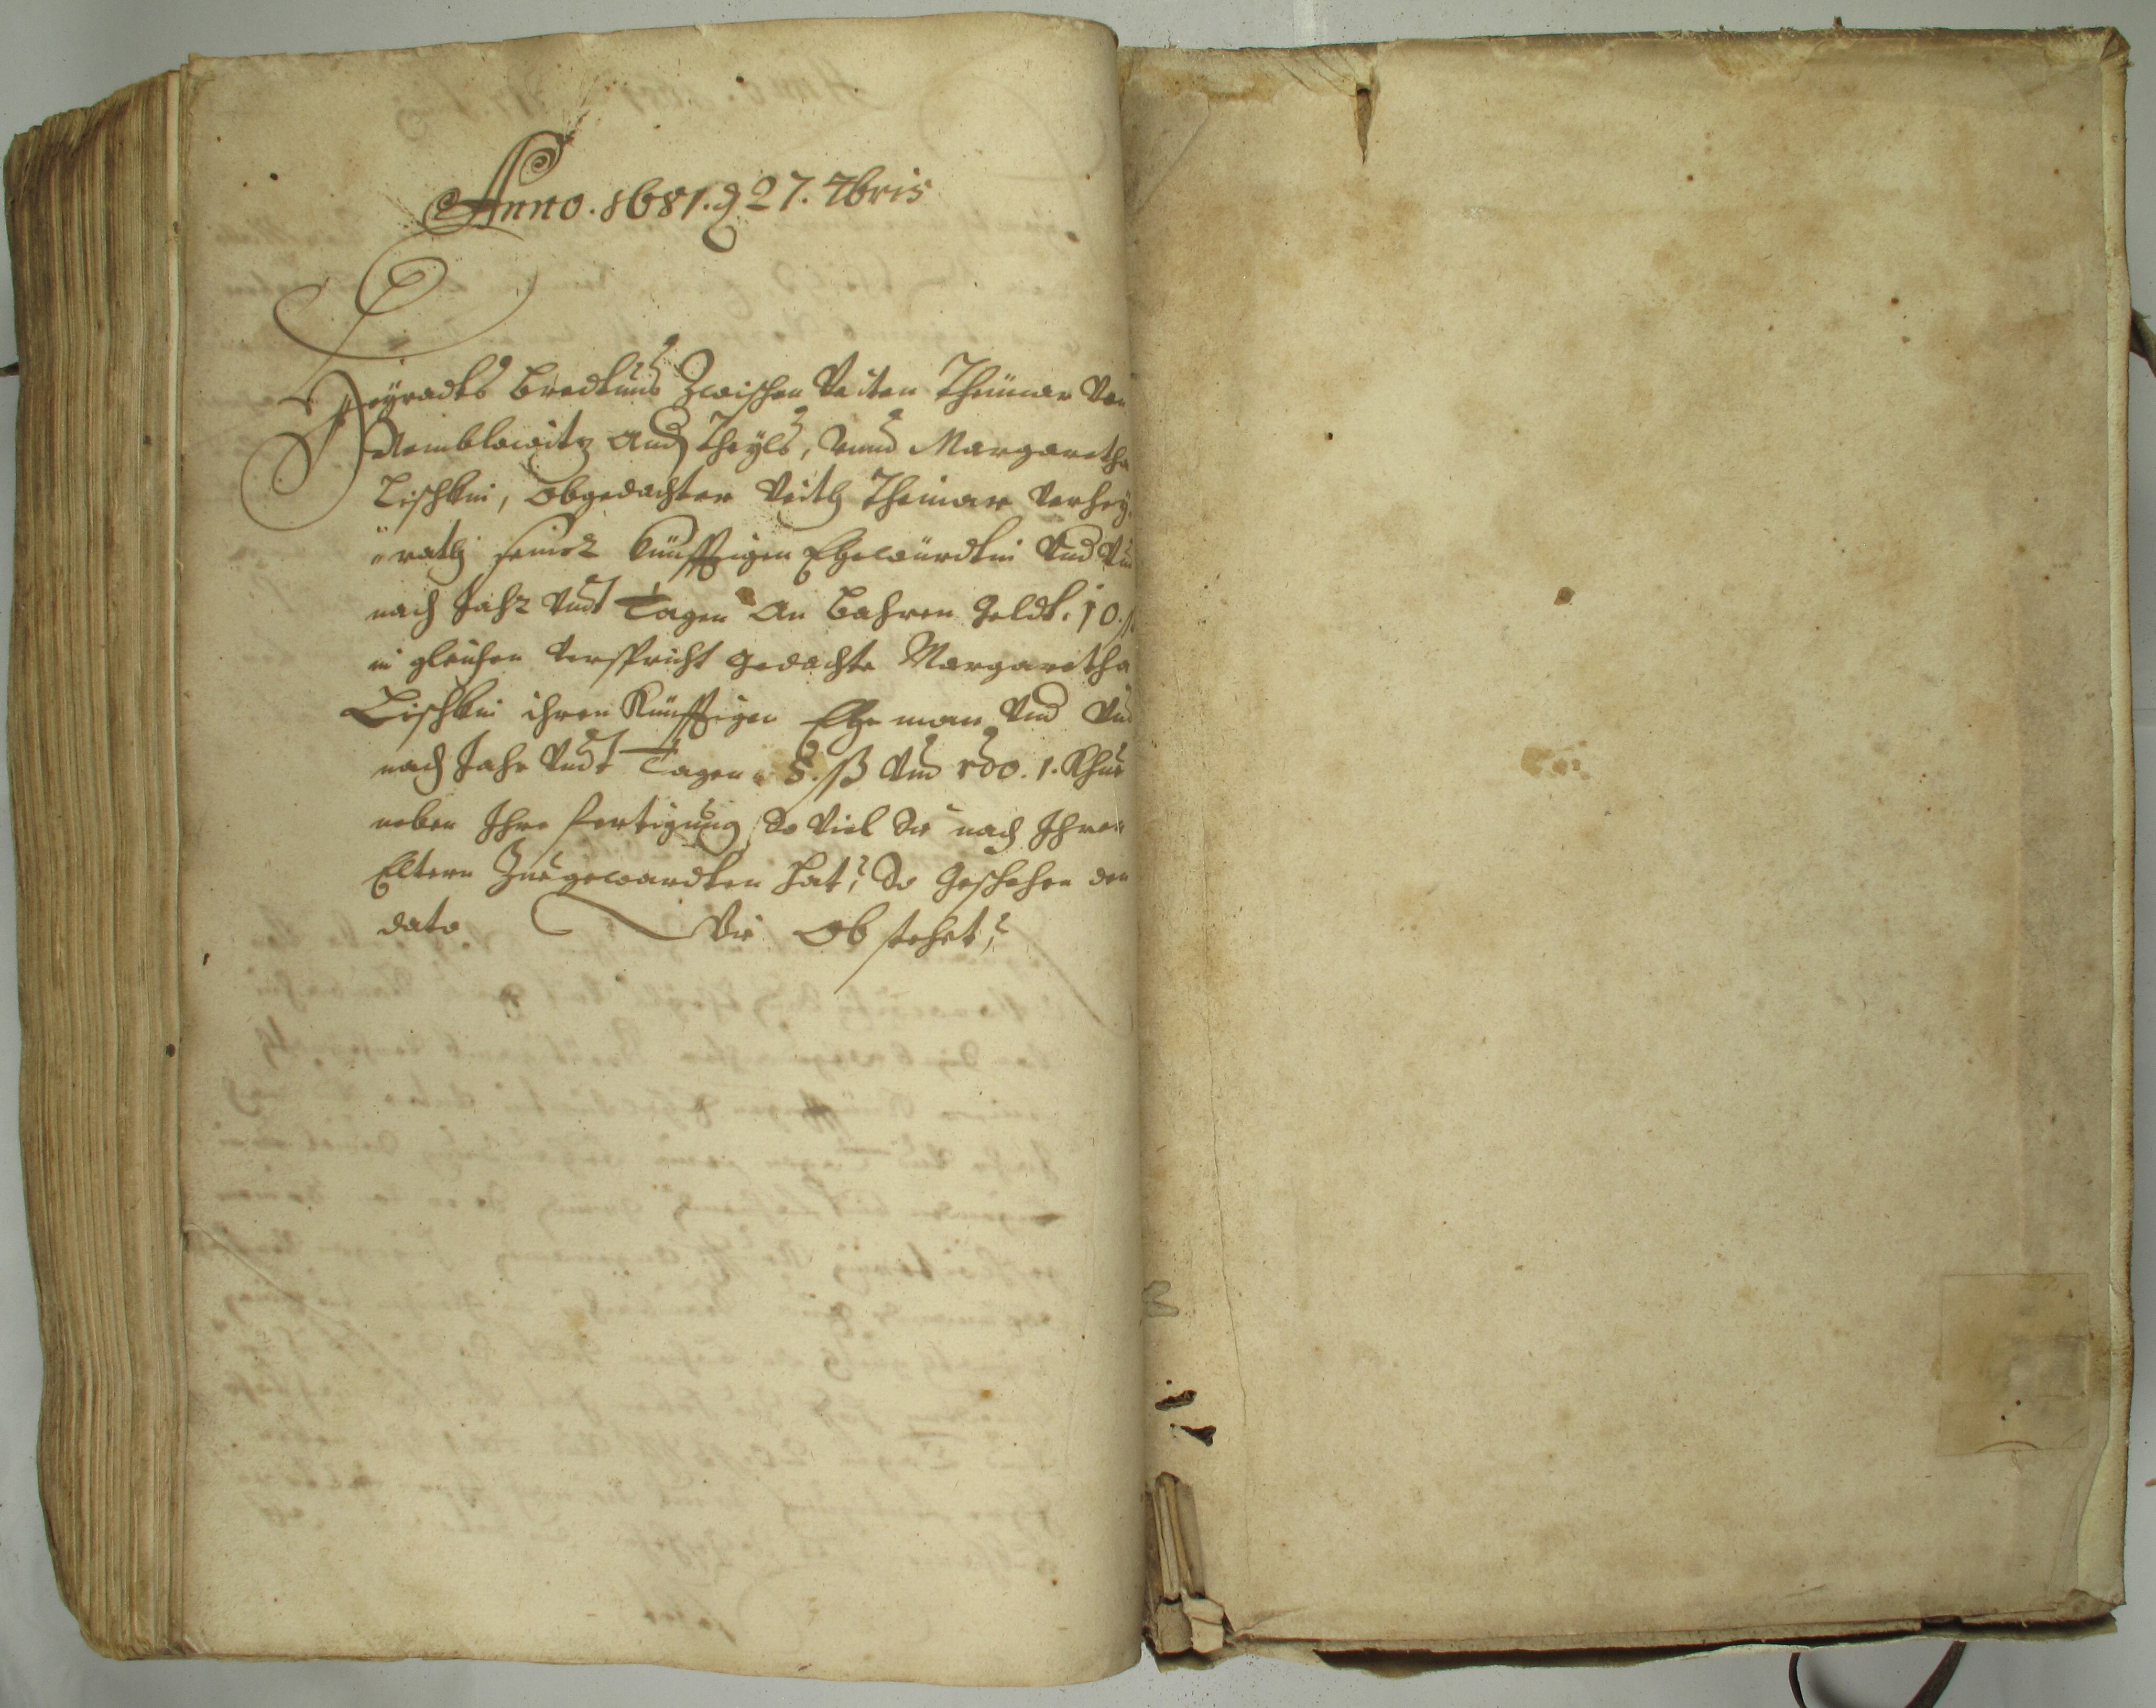 Anno. 1681. d 27. 7bris
Heyradts beredtnus Zwischen Veiten Theimar Von
Nemblowitz Andern Theyls, Vnnd Margaretha
Lischkin, Obgedachter Veith Theimar Verhey
rath seiner künfftigen Ehewürdtin Vnd
nach Jahr Vndt Tagen An bahren Geldt. 10. ß
in gleichen Verspricht gedachte Margaretha
Lischkin ihren Künfftigen Ehe man Vnd
nach Jahr Vndt Tagen 5. ß Vnd rdo. 1. Khue
neben Ihre fertigung, So Viel Sie nach Ihren
Eltern Zue gewardten hat, So Geschehen den
dato Wie Ob stehet,